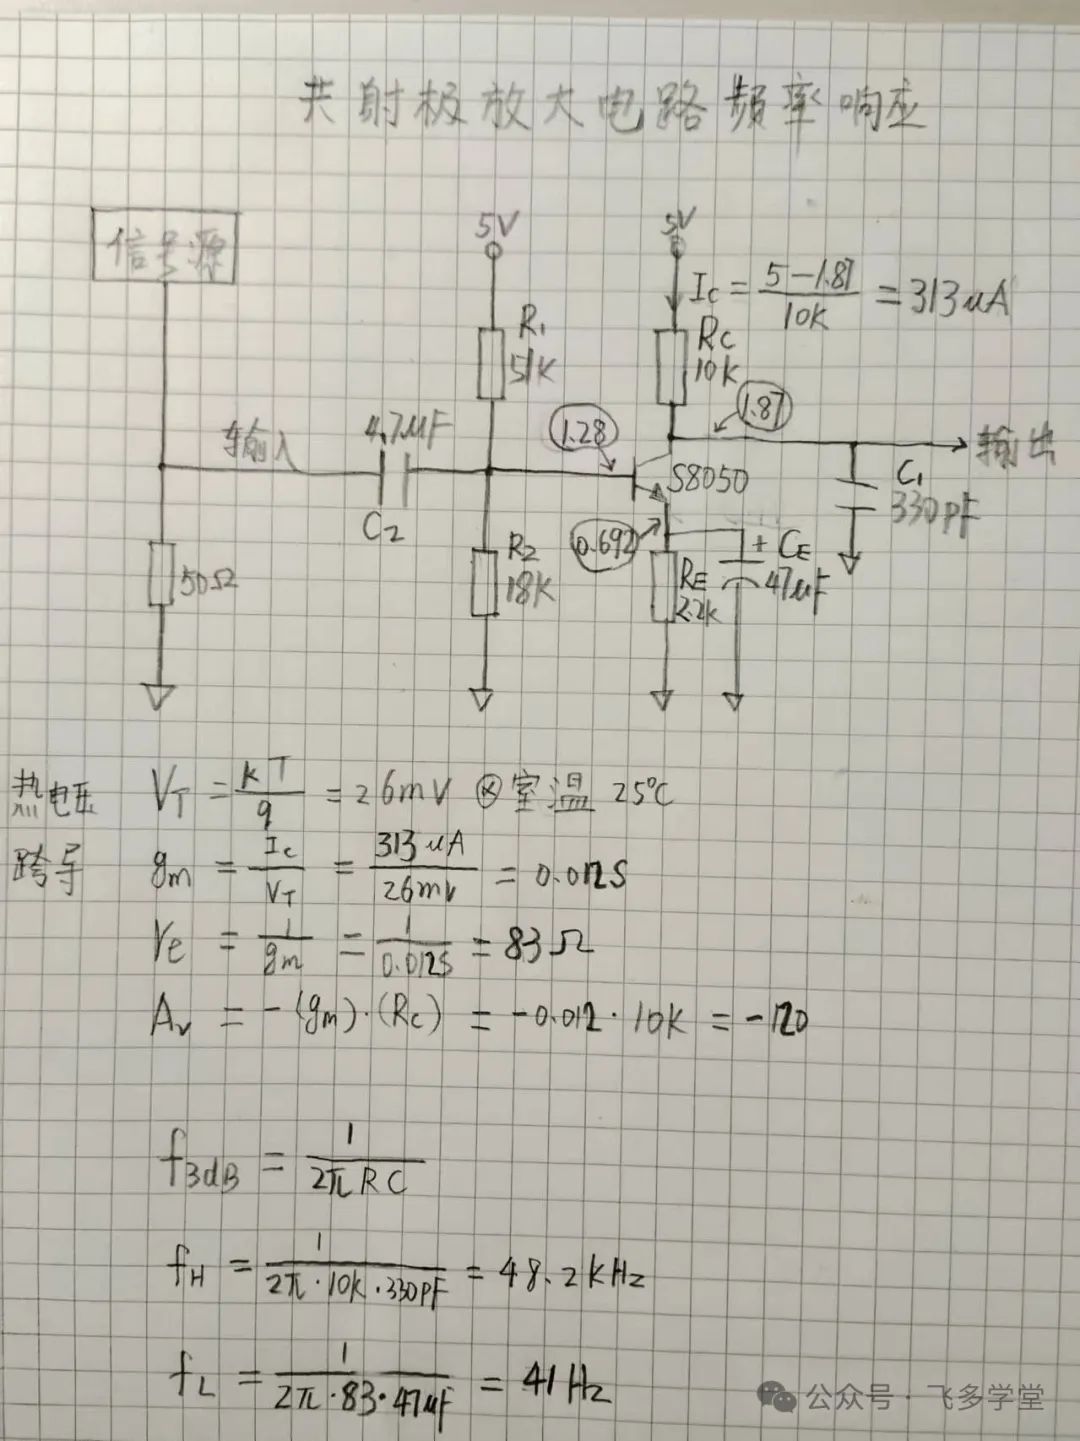 共射极放大电路频率响应
信号源
5V
5V
Ic = (5-1.87)/10K = 313uA
R1
51K
Rc
10K
1.87
4.7uF
1.28
输入
输出
C2
S8050
C1
330pF
0.692
R2
18K
RE
2.2K
+ CE
47uF
50Ω
热电压 VT = kT/q = 26mV @室温 25℃
跨导 gm = Ic/VT = 313uA/26mV = 0.012S
re = 1/gm = 1/0.012S = 83Ω
Av = -(gm)·(Rc) = -0.012·10K = -120
f3dB = 1/(2πRC)
fH = 1/(2π·10K·330pF) = 48.2KHz
fL = 1/(2π·83·47uF) = 41Hz
公众号·飞多学堂